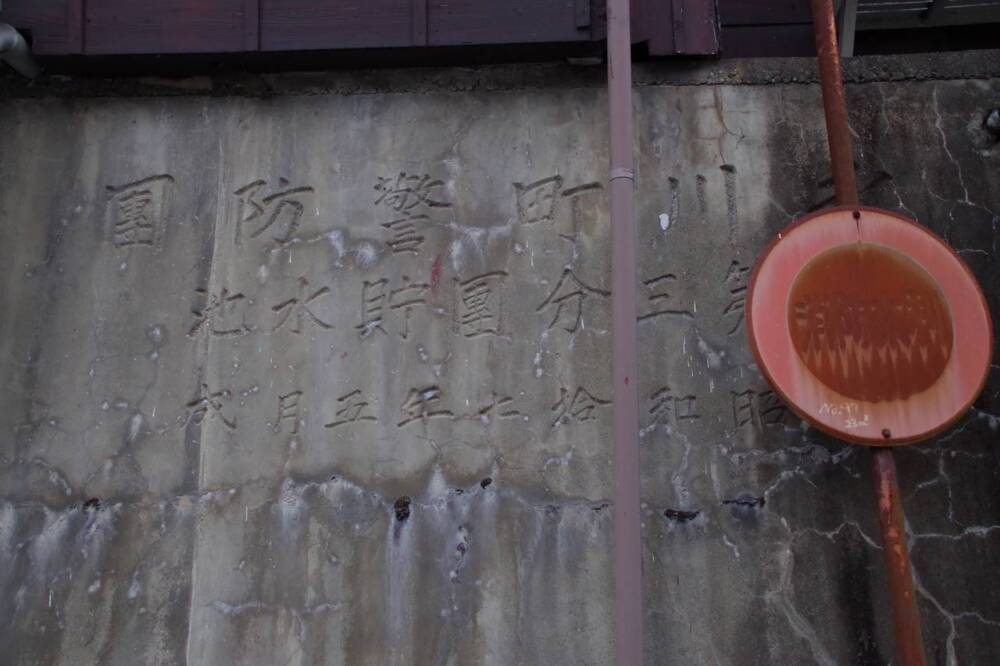 川町警防團
第三分團貯水池
昭和拾七年五月成
消防水利